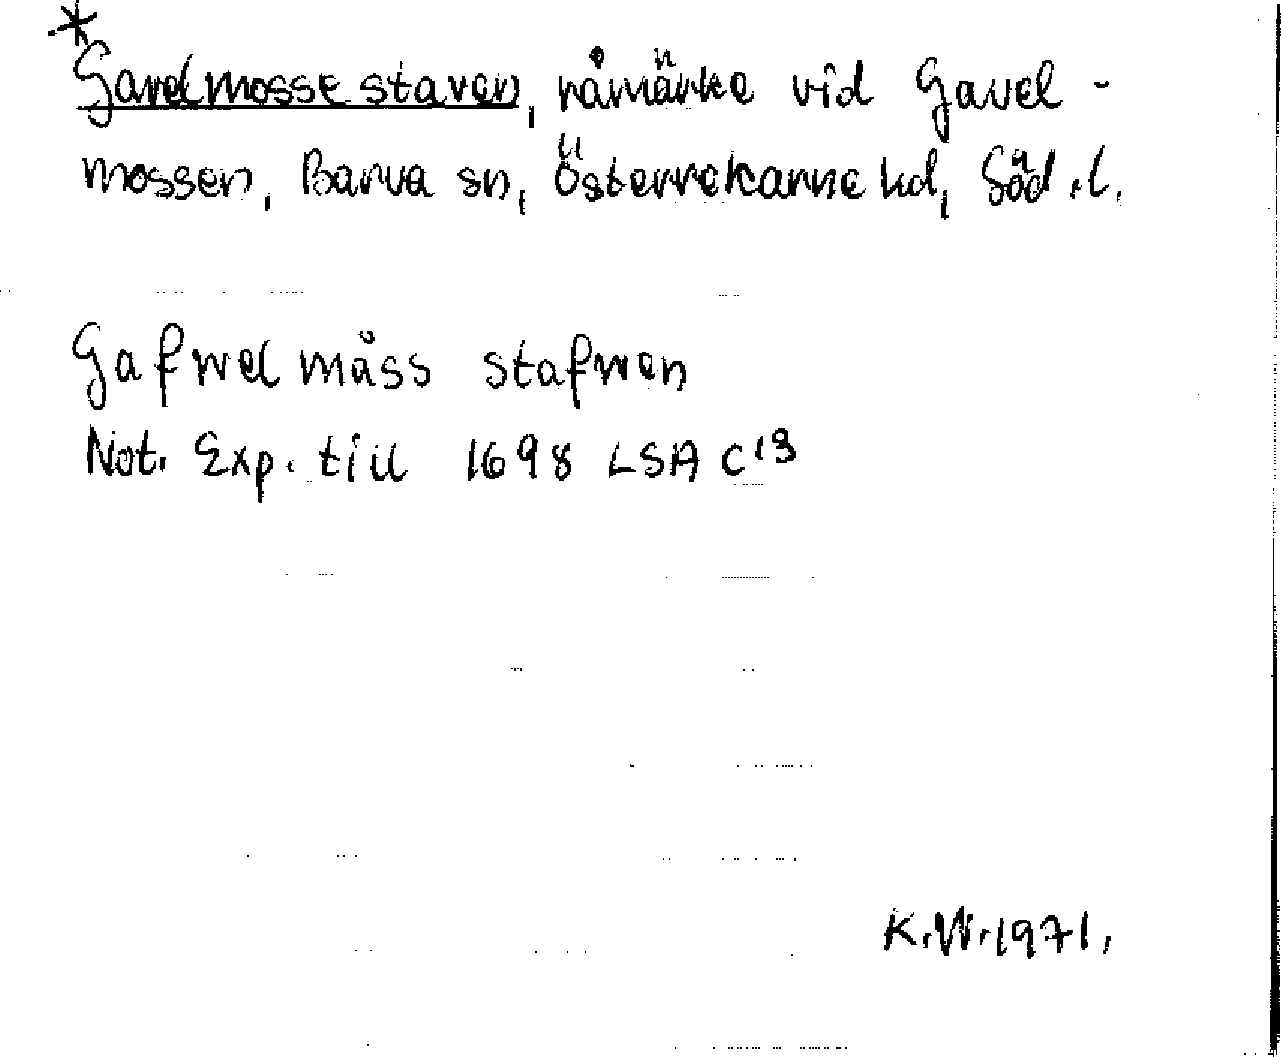 *
Gavelmossestaven, råmärke vid Gavel-
mossen, Barva sn, Österrekarne hd, Söd.l.
Gafwelmåss stafwen
Not. Exp. till 1698 LSA C13
K.W.1971.